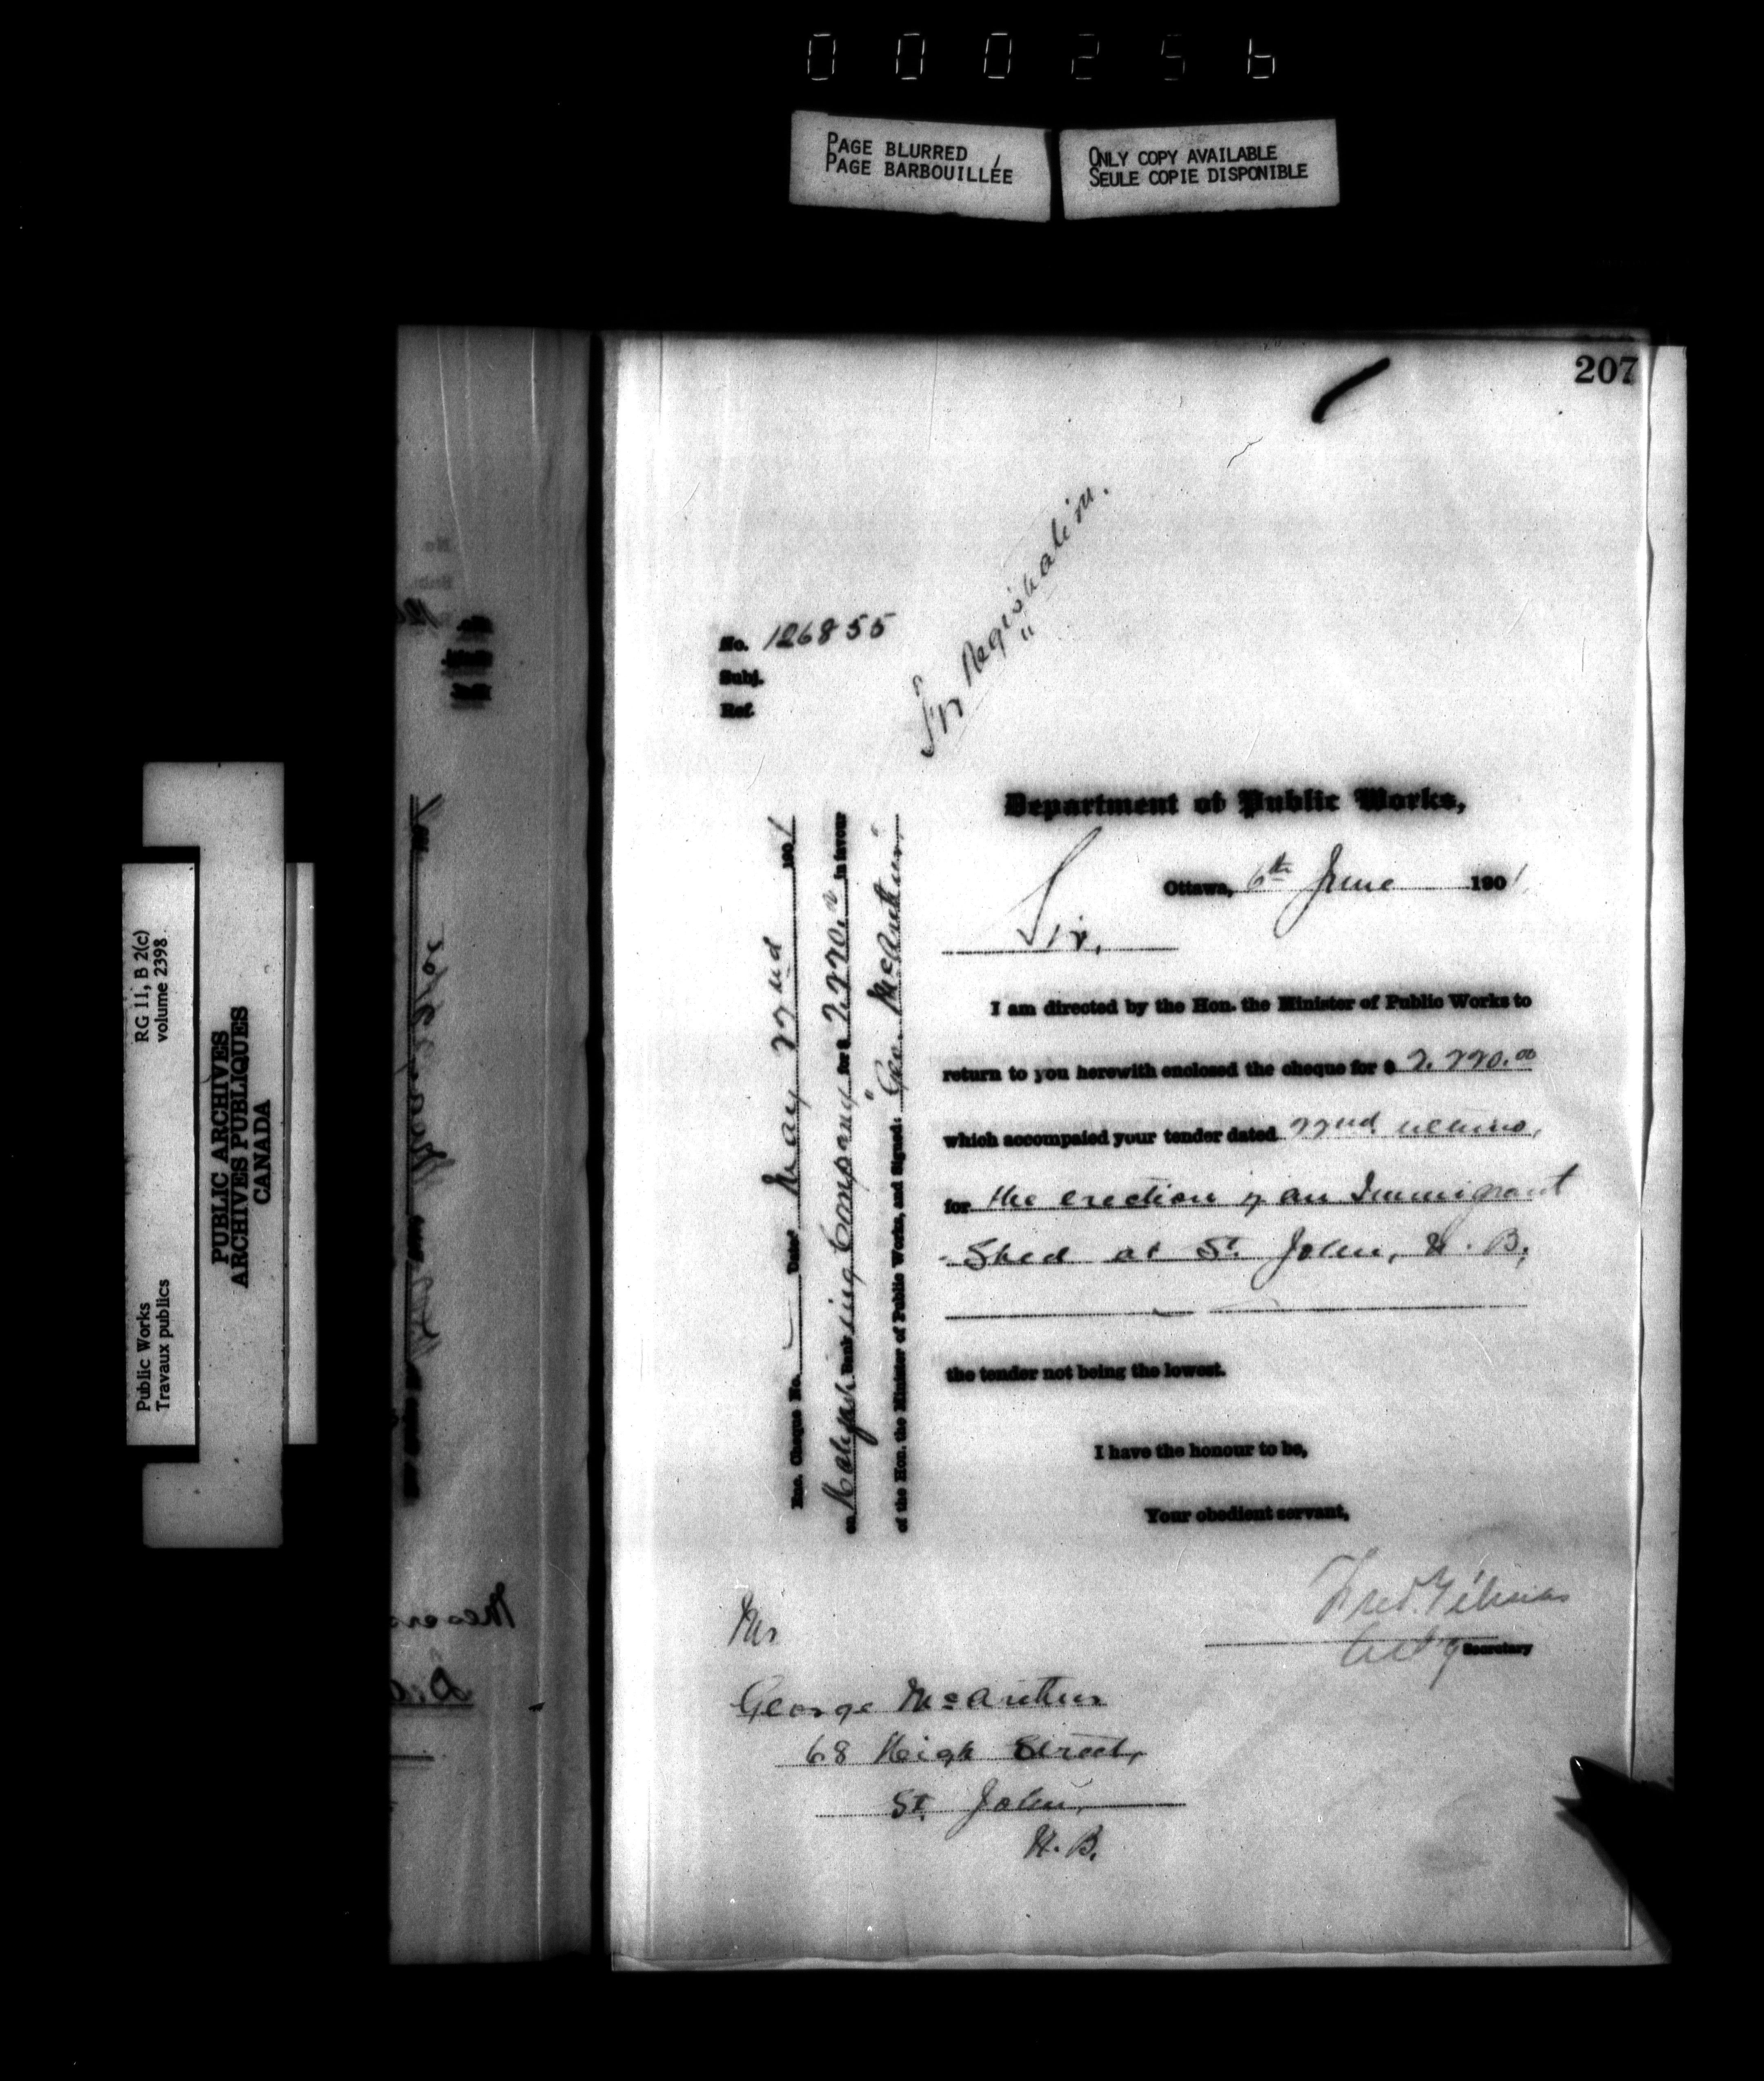 000256
PAGE BLURRED
PAGE BARBOUILLÉE
ONLY COPY AVAILABLE
SEULE COPIE DISPONIBLE
207
For Registration.
No. 126855
Subj.
Ref.
Department of Public Works,
Ottawa, 6th June 1901
Sir,
I am directed by the Hon. the Minister of Public Works to
return to you herewith enclosed the cheque for $ 2.220.00
which accompaied your tender dated 22nd ultimo,
for the erection of an Immigrant
Shed at St. John, N. B.
the tender not being the lowest.
I have the honour to be,
Your obedient servant,
Fred. Gélinas
Actg Secretary
Enc. Cheque No. Dated May 22nd 1901
on Halifax Banking Company for $ 2.220.00 in favour
of the Hon. the Minister of Public Works, and Signed: Geo. McArthur
Mr
George McArthur
68 High Street,
St. John,
N. B.
Public Works
Travaux publics
RG 11, B 2(c)
volume 2398
PUBLIC ARCHIVES
ARCHIVES PUBLIQUES
CANADA